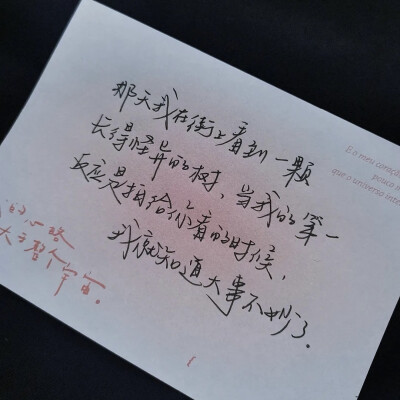 那天我在街上看到一颗
长得怪异的树，当我的第一
反应是拍给你看的时候，
我就知道大事不妙了。
E o meu coração
pouco m
que o universo inte
的心 略
大于整个宇宙。